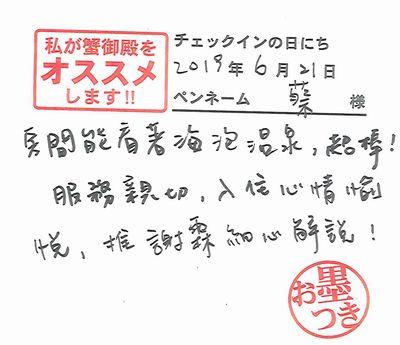 私が蟹御殿を
オススメ
します!!
チェックインの日にち
2019年6月21日
ペンネーム 様
房間能看著海泡溫泉，超棒！
服務親切，入住心情愉
悅，推謝霖細心解說！
お墨
つき